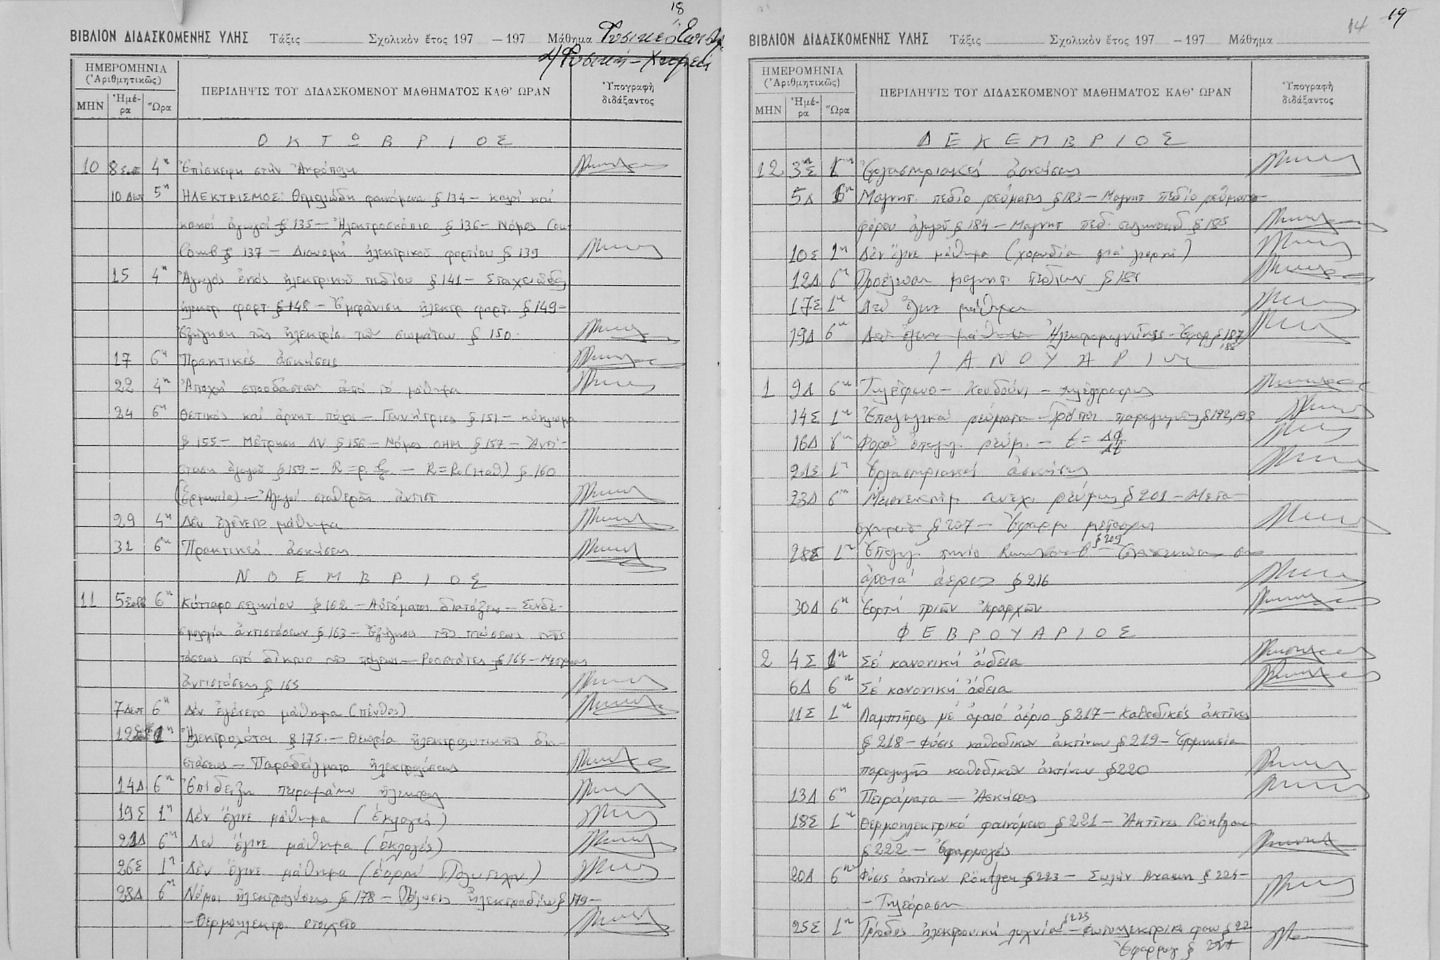 18
ΒΙΒΛΙΟΝ ΔΙΔΑΣΚΟΜΕΝΗΣ ΥΛΗΣ Τάξις Σχολικὸν ἔτος 197 —197 Μάθημα
Φυσική - Χημεία
ΗΜΕΡΟΜΗΝΙΑ
(Ἀριθμητικῶς)
ΜΗΝ Ἡμέρα Ὥρα
ΠΕΡΙΛΗΨΙΣ ΤΟΥ ΔΙΔΑΣΚΟΜΕΝΟΥ ΜΑΘΗΜΑΤΟΣ ΚΑΘ' ΩΡΑΝ
Ὑπογραφὴ διδάξαντος
ΟΚΤΩΒΡΙΟΣ
10 8 Σαβ 4η Ἐπίσκεψη στὴν Ἀκρόπολη
10 Δευτ 5η ΗΛΕΚΤΡΙΣΜΟΣ: Θεμελιώδη φαινόμενα § 134 — καλοί καί
κακοί ἀγωγοί § 135 — Ἠλεκτροσκόπιο § 136 — Νόμος Cou-
lomb § 137 — Διανομή ἠλεκτρικοῦ φορτίου § 139
15 4η ἑνός ἠλεκτρικοῦ πεδίου § 141 — Στοιχειῶδες
ἠλεκτρ φορτ. § 148 — Ἐμφάνιση ἠλεκτρ φορτ. § 149 —
Ἐξήγηση τῆς ἠλεκτρίσ. τῶν σωμάτων § 150
17 6η Πρακτικές ἀσκήσεις
22 4η Ἀποχή σπουδαστῶν ἀπό τό μάθημα
24 6η Θετικός καί ἀρνητ πόλος — Γεννήτριες § 151 — κύκλωμα
§ 155 — Μέτρηση ΔV § 156 — Νόμος ΟΗΜ § 157 — Ἀντί-
σταση ἀγωγοῦ § 159 — R = ρ — R = Ro(1+αθ) § 160
(Ἑρμηνεία) — Ἀγωγοί σταθερῆς ἀντιστ
29 4η Δέν ἐγένετο μάθημα
31 6η Πρακτικές ἀσκήσεις
ΝΟΕΜΒΡΙΟΣ
11 5 Σαβ 6η Κύτταρο σεληνίου § 162 — Αὐτόματοι διατάξεις — Συνδε-
σμολογία ἀντιστάσεων § 163 — Ἐξήγηση τῆς πτώσεως τῆς
τάσεως στό δίκτυο τῆς πόλεως — Ροοστάτες § 164 — Μέτρηση
ἀντιστάσεως § 165
7 Δευτ 6η Δέν ἐγένετο μάθημα (πένθος)
12 1η Ἠλεκτρολύται § 175 — Θεωρία ἠλεκτρολυτικῆς δια-
στάσεως — Παραδείγματα ἠλεκτρολύσεως
14Δ 6η Ἐπίδειξη πειραμάτων ἠλεκτρ
19Σ 1η Δέν ἔγινε μάθημα (ἐκλογές)
21Δ 6η Δέν ἔγινε μάθημα (ἐκλογές)
26Σ 1η Δέν ἔγινε μάθημα (ἑορτή Πολυτεχν)
28Δ 6η Νόμοι ἠλεκτρολύσεως § 178 — Πόλωσις ἠλεκτροδίων § 179 —
— Θερμοηλεκτρ στοιχεῖο
14 19
ΒΙΒΛΙΟΝ ΔΙΔΑΣΚΟΜΕΝΗΣ ΥΛΗΣ Τάξις Σχολικὸν ἔτος 197 —197 Μάθημα
ΗΜΕΡΟΜΗΝΙΑ
(Ἀριθμητικῶς)
ΜΗΝ Ἡμέρα Ὥρα
ΠΕΡΙΛΗΨΙΣ ΤΟΥ ΔΙΔΑΣΚΟΜΕΝΟΥ ΜΑΘΗΜΑΤΟΣ ΚΑΘ' ΩΡΑΝ
Ὑπογραφὴ διδάξαντος
ΔΕΚΕΜΒΡΙΟΣ
12 3Σ 1η Ἐργαστηριακές ἀσκήσεις
5Δ 6η Μαγνητ. πεδίο ρεύματος § 183 — Μαγνητ πεδίο ρευματο-
φόρου ἀγωγοῦ § 184 — Μαγνητ πεδ. σωληνοειδ § 185
10Σ 1η Δέν ἔγινε μάθημα (χορωδία γιά γιορτή)
12Δ 6η Προέλευση μαγνητ πεδίων § 186
17Σ 1η Δέν ἔγινε μάθημα
19Δ 6η Ἠλεκτρομαγνῆτες — Ἐφαρ § 187
188
ΙΑΝΟΥΑΡΙΟΣ
1 9Δ 6η Τηλέφωνο — Κουδούνι — τηλέγραφος
14Σ 1η Ἐπαγωγικά ρεύματα — Τρόποι παραγωγῆς § 192, 193
16Δ 6η Φορά ἐπαγωγ. ρεύμ. —
21Σ 1η Ἐργαστηριακές ἀσκήσεις
23Δ 6η συνεχ ρεύματος § 201 — Μετα-
σχηματ § 207 — Ἐφαρμ μετασχ
28Σ 1η Ἐπαγωγ πηνίο § 209
ἀραιά ἀέρια § 216
30Δ 6η Ἑορτή τριῶν Ἱεραρχῶν
ΦΕΒΡΟΥΑΡΙΟΣ
2 4Σ 1η Σέ κανονική ἄδεια
6Δ 6η Σέ κανονική ἄδεια
11Σ 1η Λαμπτῆρες μέ ἀραιό ἀέριο § 217 — Καθοδικές ἀκτῖνες
§ 218 — Φύσις καθοδικῶν ἀκτίνων § 219 — Ἑρμηνεία
παραγωγῆς καθοδικῶν ἀκτίνων § 220
13Δ 6η Πειράματα — Ἀσκήσεις
18Σ 1η Θερμοηλεκτρικό φαινόμενο § 221 — Ἀκτῖνες Röntgen
§ 222 — Ἐφαρμογές
20Δ 6η Φύσις ἀκτίνων Röntgen § 223 — Σωλήν Braun § 224 —
— Τηλεόραση
25Σ 1η Τρίοδος ἠλεκτρονική λυχνία § 225 — Φωτοηλεκτρικό φαιν § 22
Ἐφαρμογ §